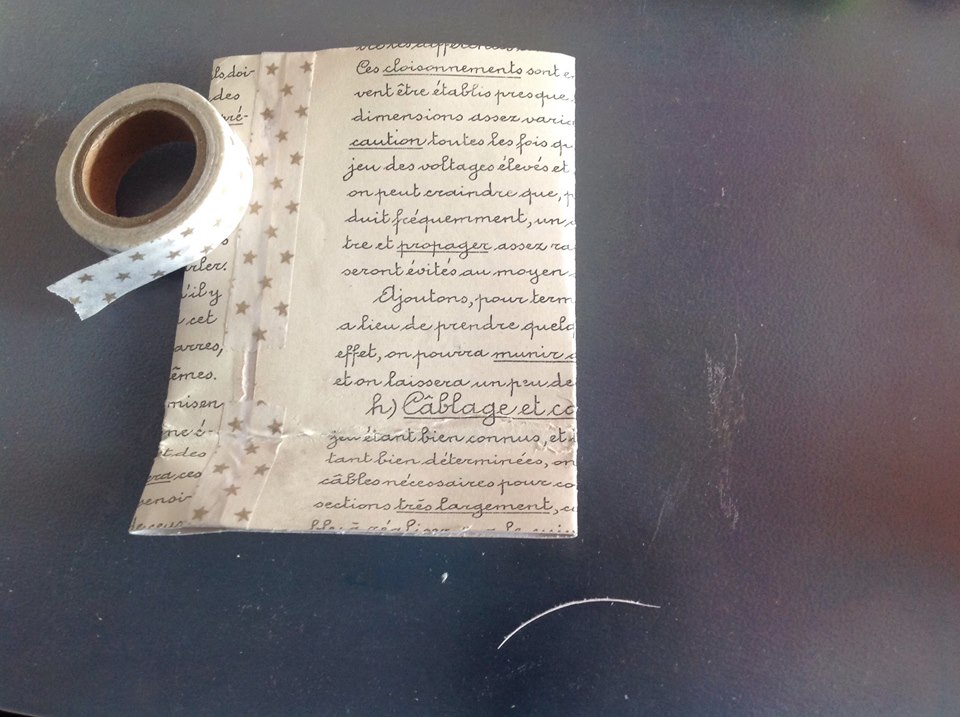 ls doi-
des
Ces cloisonnements sont e
vent être établis presque
dimensions assez vari
caution toutes les fois q
jeu des voltages élevés et
on peut craindre que, p
duit fréquemment, un
tre et propager assez ra
seront évités au moyen
Ajoutons, pour term
a lieu de prendre quelq
effet, on pourra munir
et on laissera un peu de
h) Câblage et co
jeu étant bien connus, et
tant bien déterminées, on
câbles nécessaires pour co
sections très largement, c
rler.
'il y
cet
arres,
êmes.
misen
et des
era ces